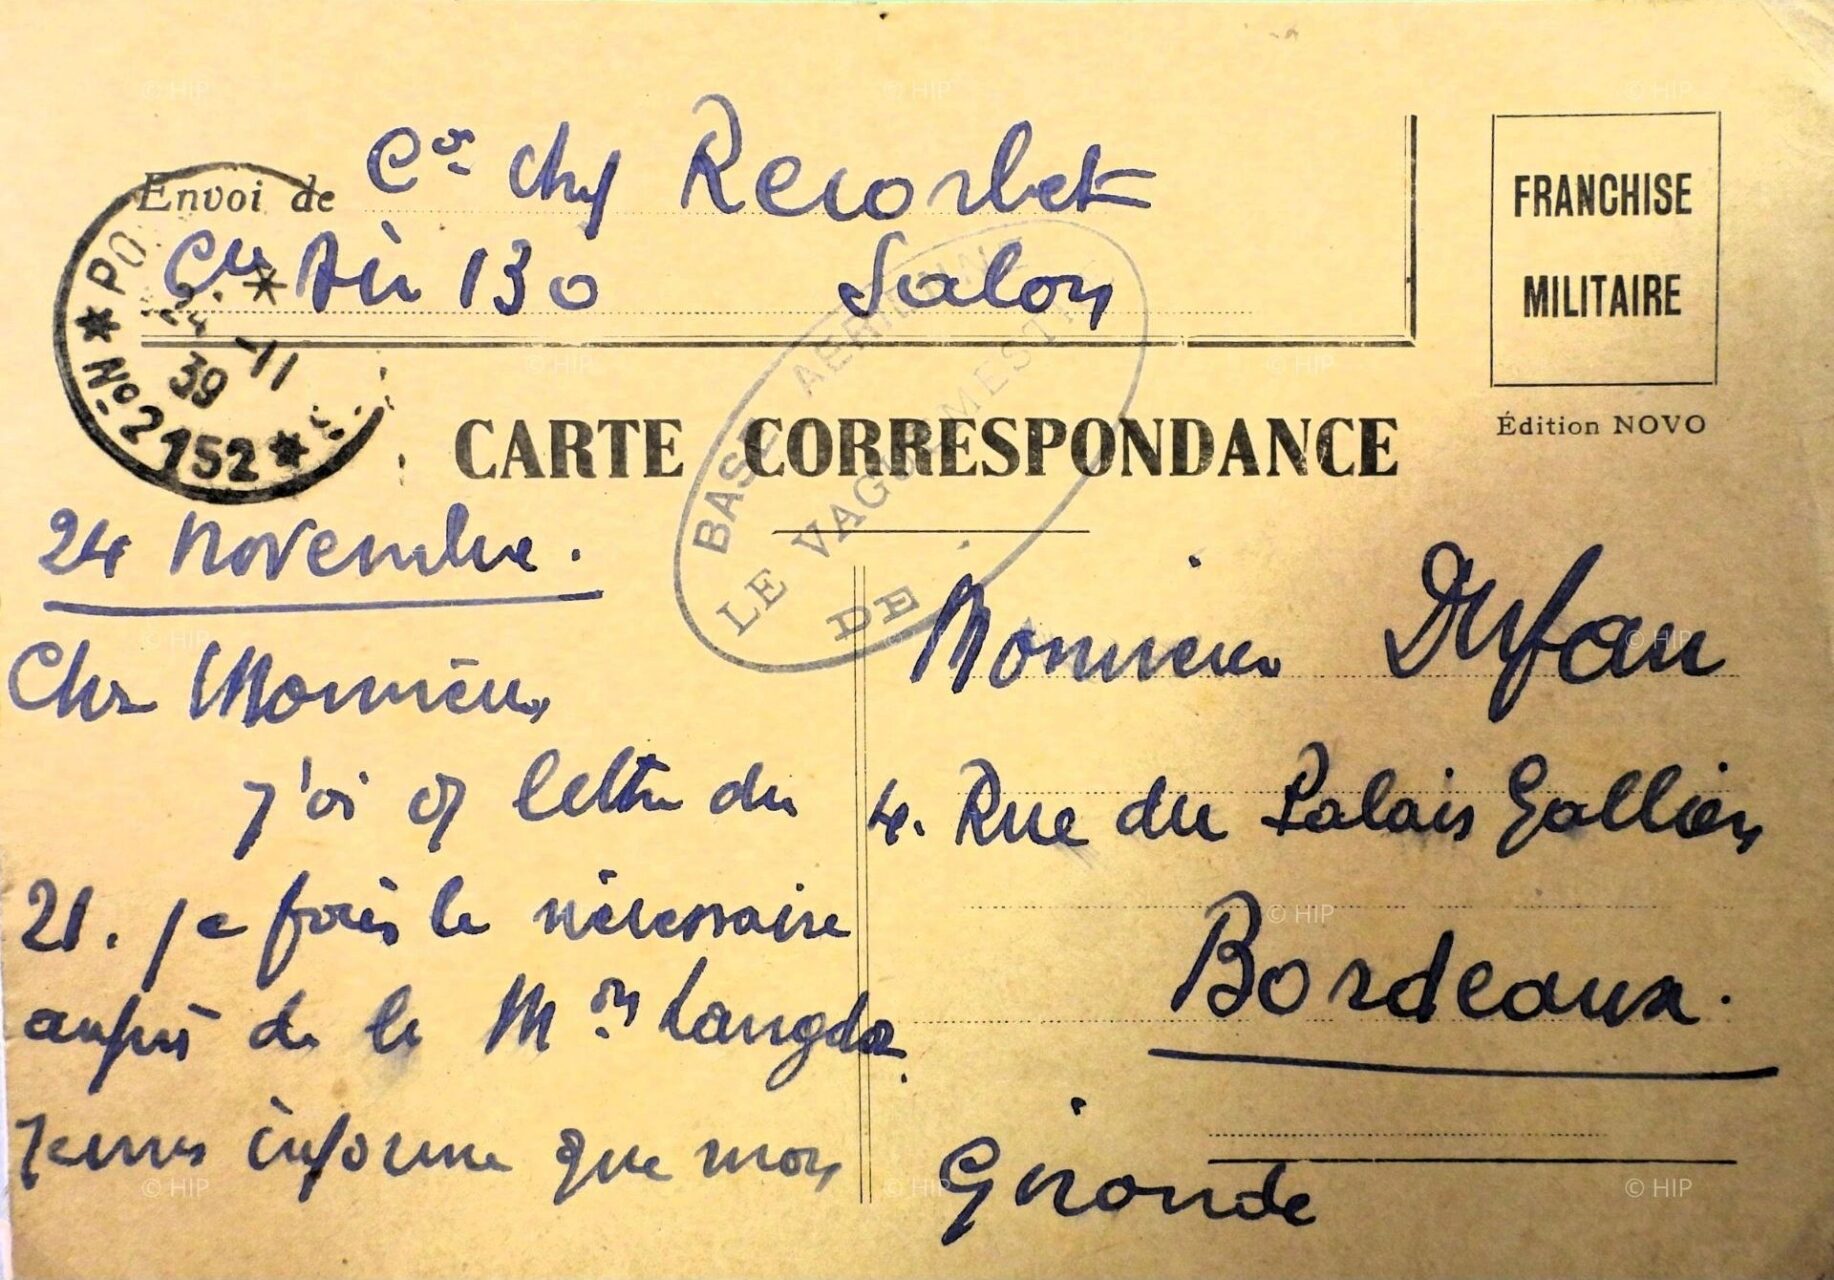 Envoi de Cal chef Recorbet
Cie Air 130 Salon
FRANCHISE
MILITAIRE
Édition NOVO
24 -11
39
No 2152
BASE AERIENNE
LE VAGUEMESTRE
DE
CARTE CORRESPONDANCE
24 novembre.
Cher Monsieur
J'ai lettre du
21. je fais le nécessaire
auprès de la Mon Langda
Je vous informe que mon
Monsieur Dufau
4. Rue du Palais Gallien
Bordeaux.
Gironde
© HIP